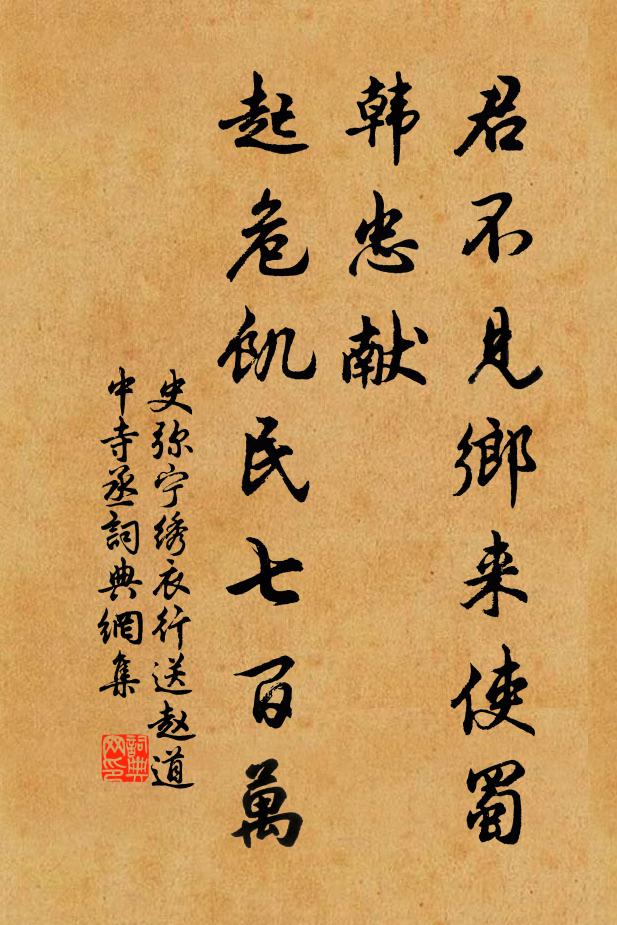 君不见鄉来使蜀
韩忠献
起危飢民七百萬
史弥宁绣衣行送赵道
中寺丞詞典網集
詞典
网印